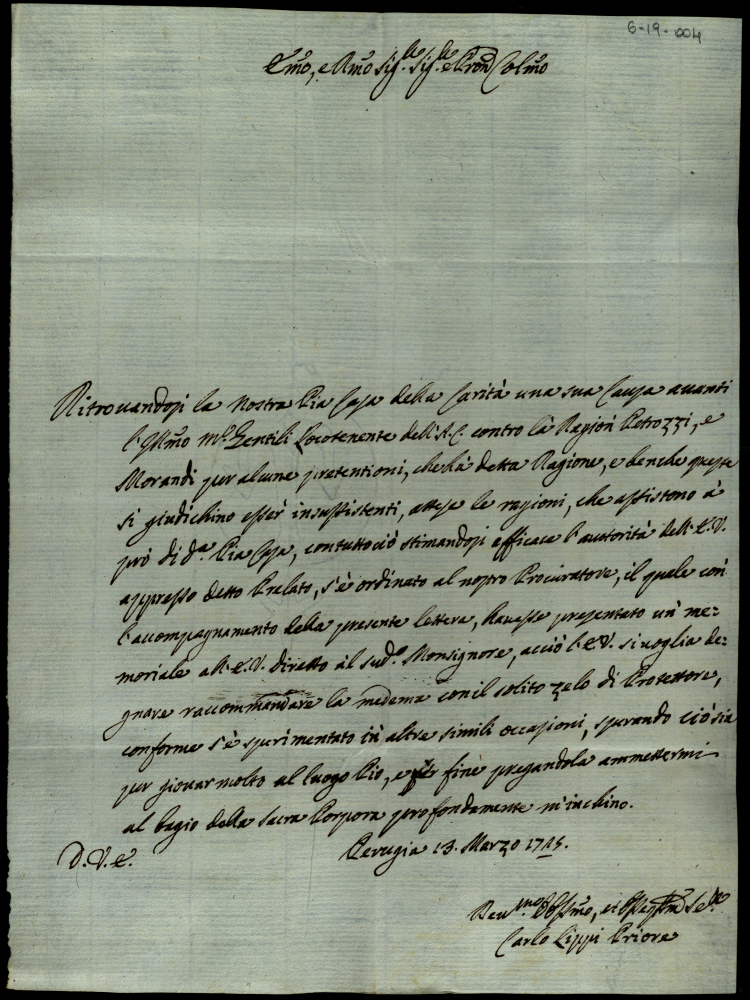 6-19-004
Em̃o, e Rm̃o Sig.re Sig.re e Pron Colm̃o
Ritrouandosi la nostra Pia Casa della Carità una sua Causa auanti
l'Illm̃o Mr. Gentili Locotenente dell'A.C. contro la Ragion Petrozzi, e
Morandi per alcune pretentioni, che hà detta Ragione, e benche queste
si giudichino esser insussistenti, attese le ragioni, che assistono à
prò di d.a Pia Casa, contuttociò stimandosi efficace l'autorità dell'E.V.
appresso detto Prelato, s'è ordinato al nostro Procuratore, il quale con
l'accompagnamento della presente lettera, hauesse presentato un me=
moriale all'E.V. diretto al sud.o Monsignore, acciò l'E.V. si uoglia de=
gnare raccommandare la medema con il solito zelo di Protettore,
conforme s'è sperimentato in altre simili occasioni, sperando ciò sia
per giouar molto al luogo Pio, e per fine pregandola ammettermi
al bagio della Sacra Porpora profondamente m'inchino.
D.V.E. Perugia 13. Marzo 1725.
Deu.mo Obblm̃o, et Se.re
Carlo Lippi Priore